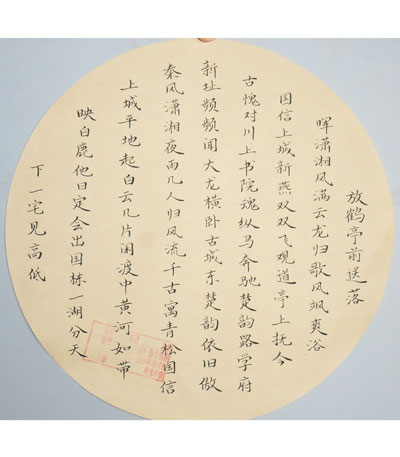 放鹤亭前送落
晖潇湘风满云龙归歌风飒爽浴
国信上城新燕双双飞观道亭上抚今
古愧对川上书院魂纵马奔驰楚韵路学府
新址频频闻大龙横卧古城东楚韵依旧傲
秦风潇湘夜雨几人归风流千古寓青松国信
上城平地起白云几片闲渡中黄河如带
映白鹿他日定会出国栋一湖分天
下一宅见高低